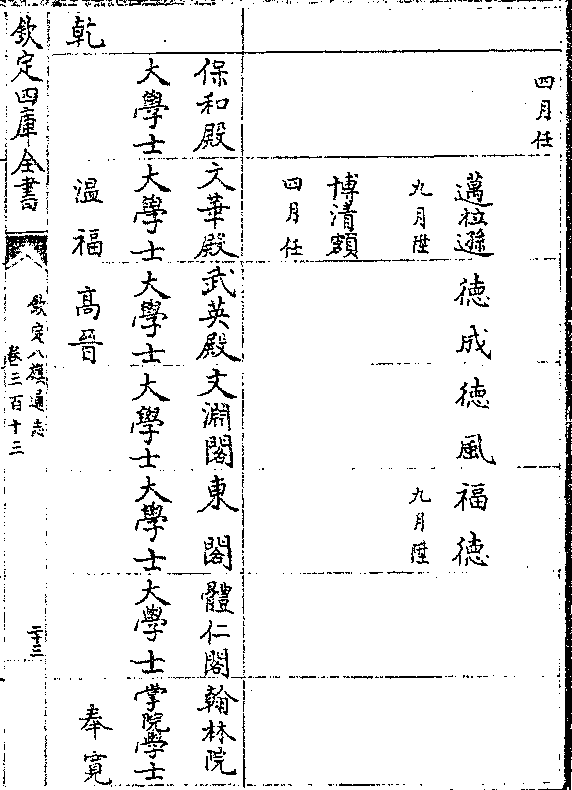 四月任
邁拉遜 德成 德風 福德
九月陞 九月陞
博清額
四月任
保和殿 文華殿 武英殿 文淵閣 東閣 體仁閣 翰林院
大學士 大學士 大學士 大學士 大學士 大學士 掌院學士
乾 温福 高晉 奉寛
欽定四庫全書
欽定八旗通志
卷三百十三
二十三